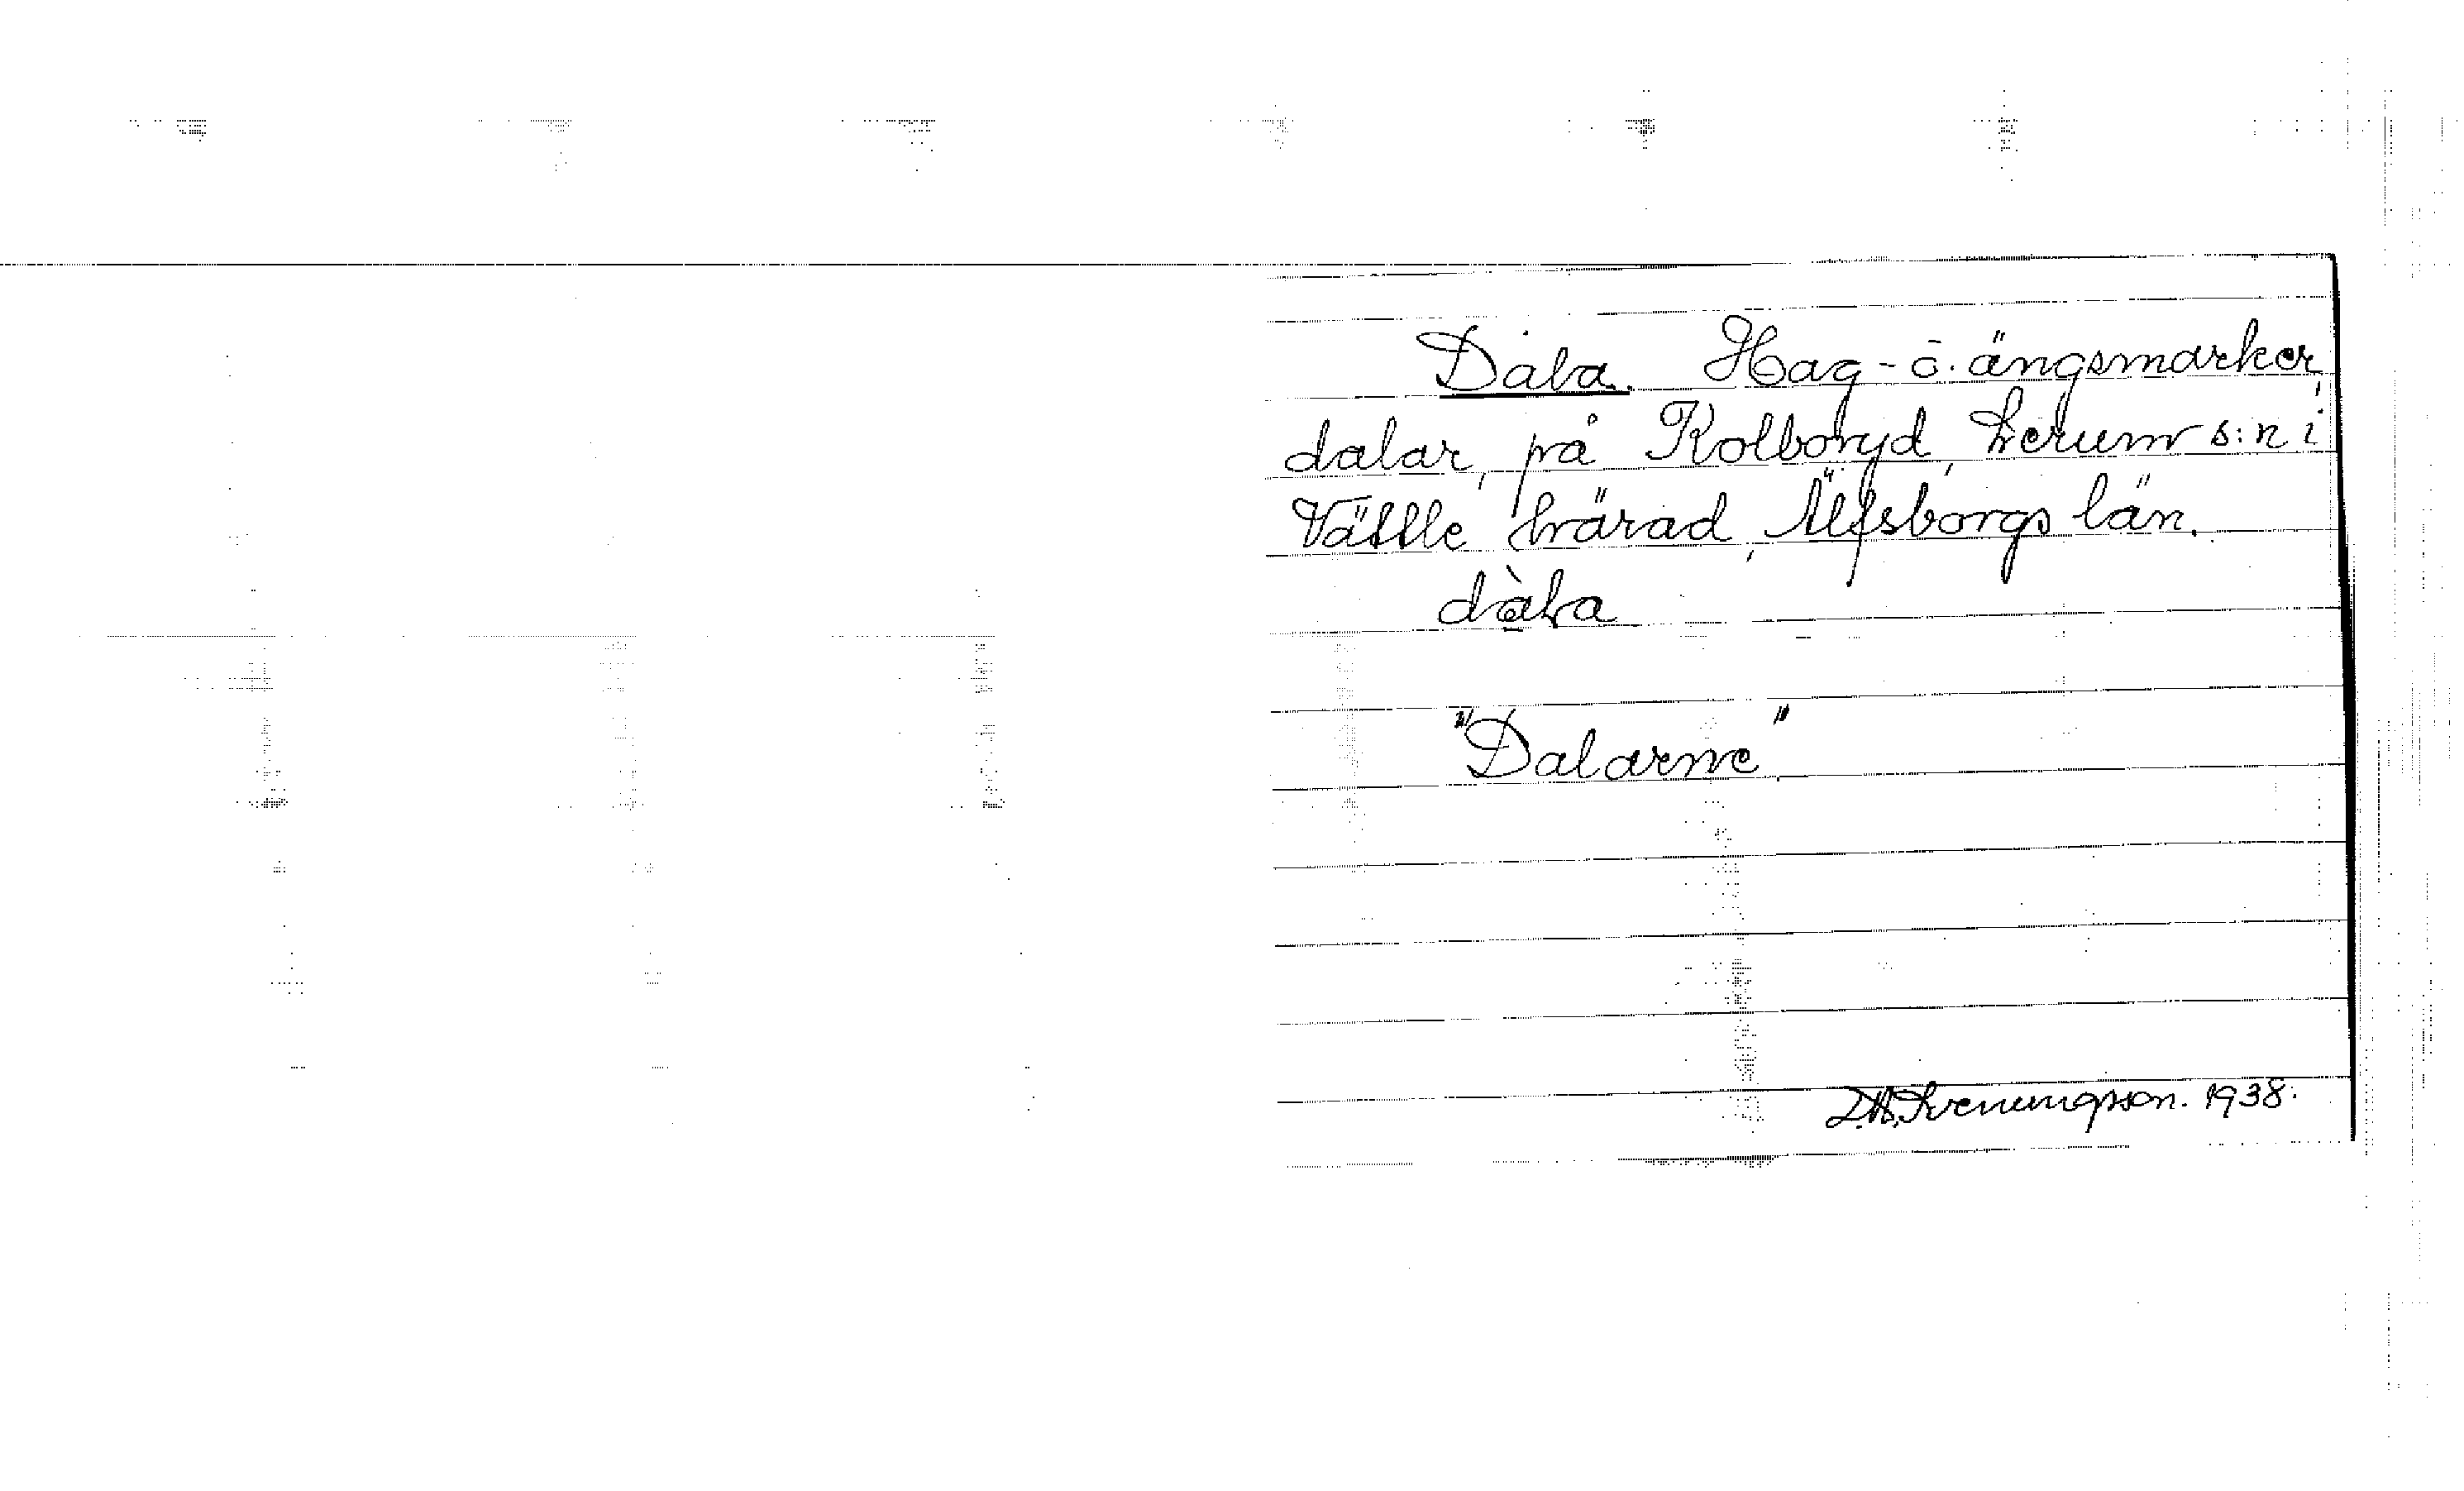 Dala. Hag- o. ängsmarker,
dalar, på Kolboryd, Lerum s:n i
Vättle härad, Älfsborgs län.
dàla
"Dalarne"
1938.